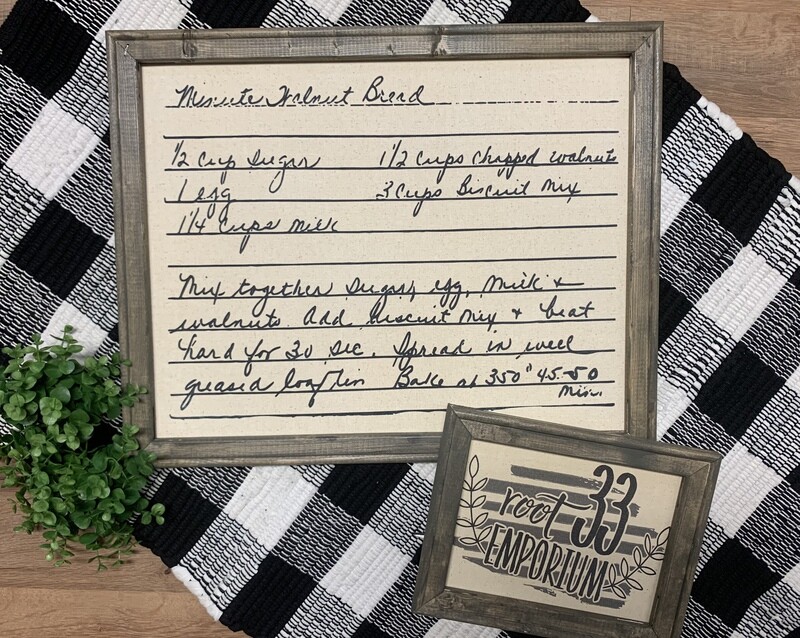 Minute Walnut Bread
1/2 cup sugar 1 1/2 cups chopped walnuts
1 egg 3 cups Biscuit Mix
1 1/4 cups milk
Mix together sugar, egg, milk &
walnuts. Add biscuit mix & beat
hard for 30 sec. Spread in well
greased loaf tin Bake at 350° 45-50
Min.
root 33
EMPORIUM